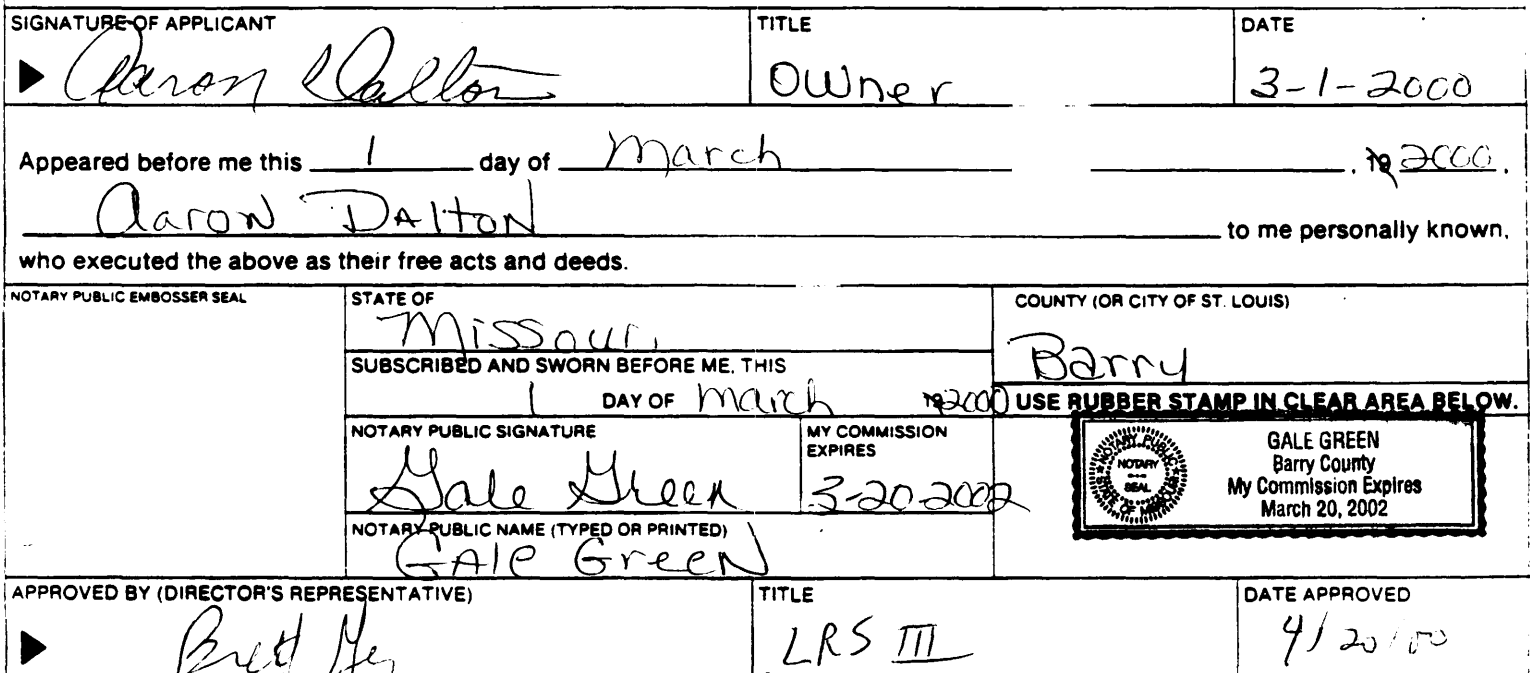 SIGNATURE OF APPLICANT TITLE DATE
Aaron Dalton Owner 3-1-2000
Appeared before me this 1 day of March , 19 2000.
Aaron Dalton to me personally known,
who executed the above as their free acts and deeds.
NOTARY PUBLIC EMBOSSER SEAL STATE OF COUNTY (OR CITY OF ST. LOUIS)
Missouri Barry
SUBSCRIBED AND SWORN BEFORE ME, THIS
1 DAY OF March 19 2000 USE RUBBER STAMP IN CLEAR AREA BELOW.
NOTARY PUBLIC SIGNATURE MY COMMISSION EXPIRES
Gale Green 3-20-2002
NOTARY PUBLIC NAME (TYPED OR PRINTED)
GAle GreeN
NOTARY PUBLIC
NOTARY
SEAL
STATE OF MISSOURI
GALE GREEN
Barry County
My Commission Expires
March 20, 2002
APPROVED BY (DIRECTOR'S REPRESENTATIVE) TITLE DATE APPROVED
LRS III 4/20/00